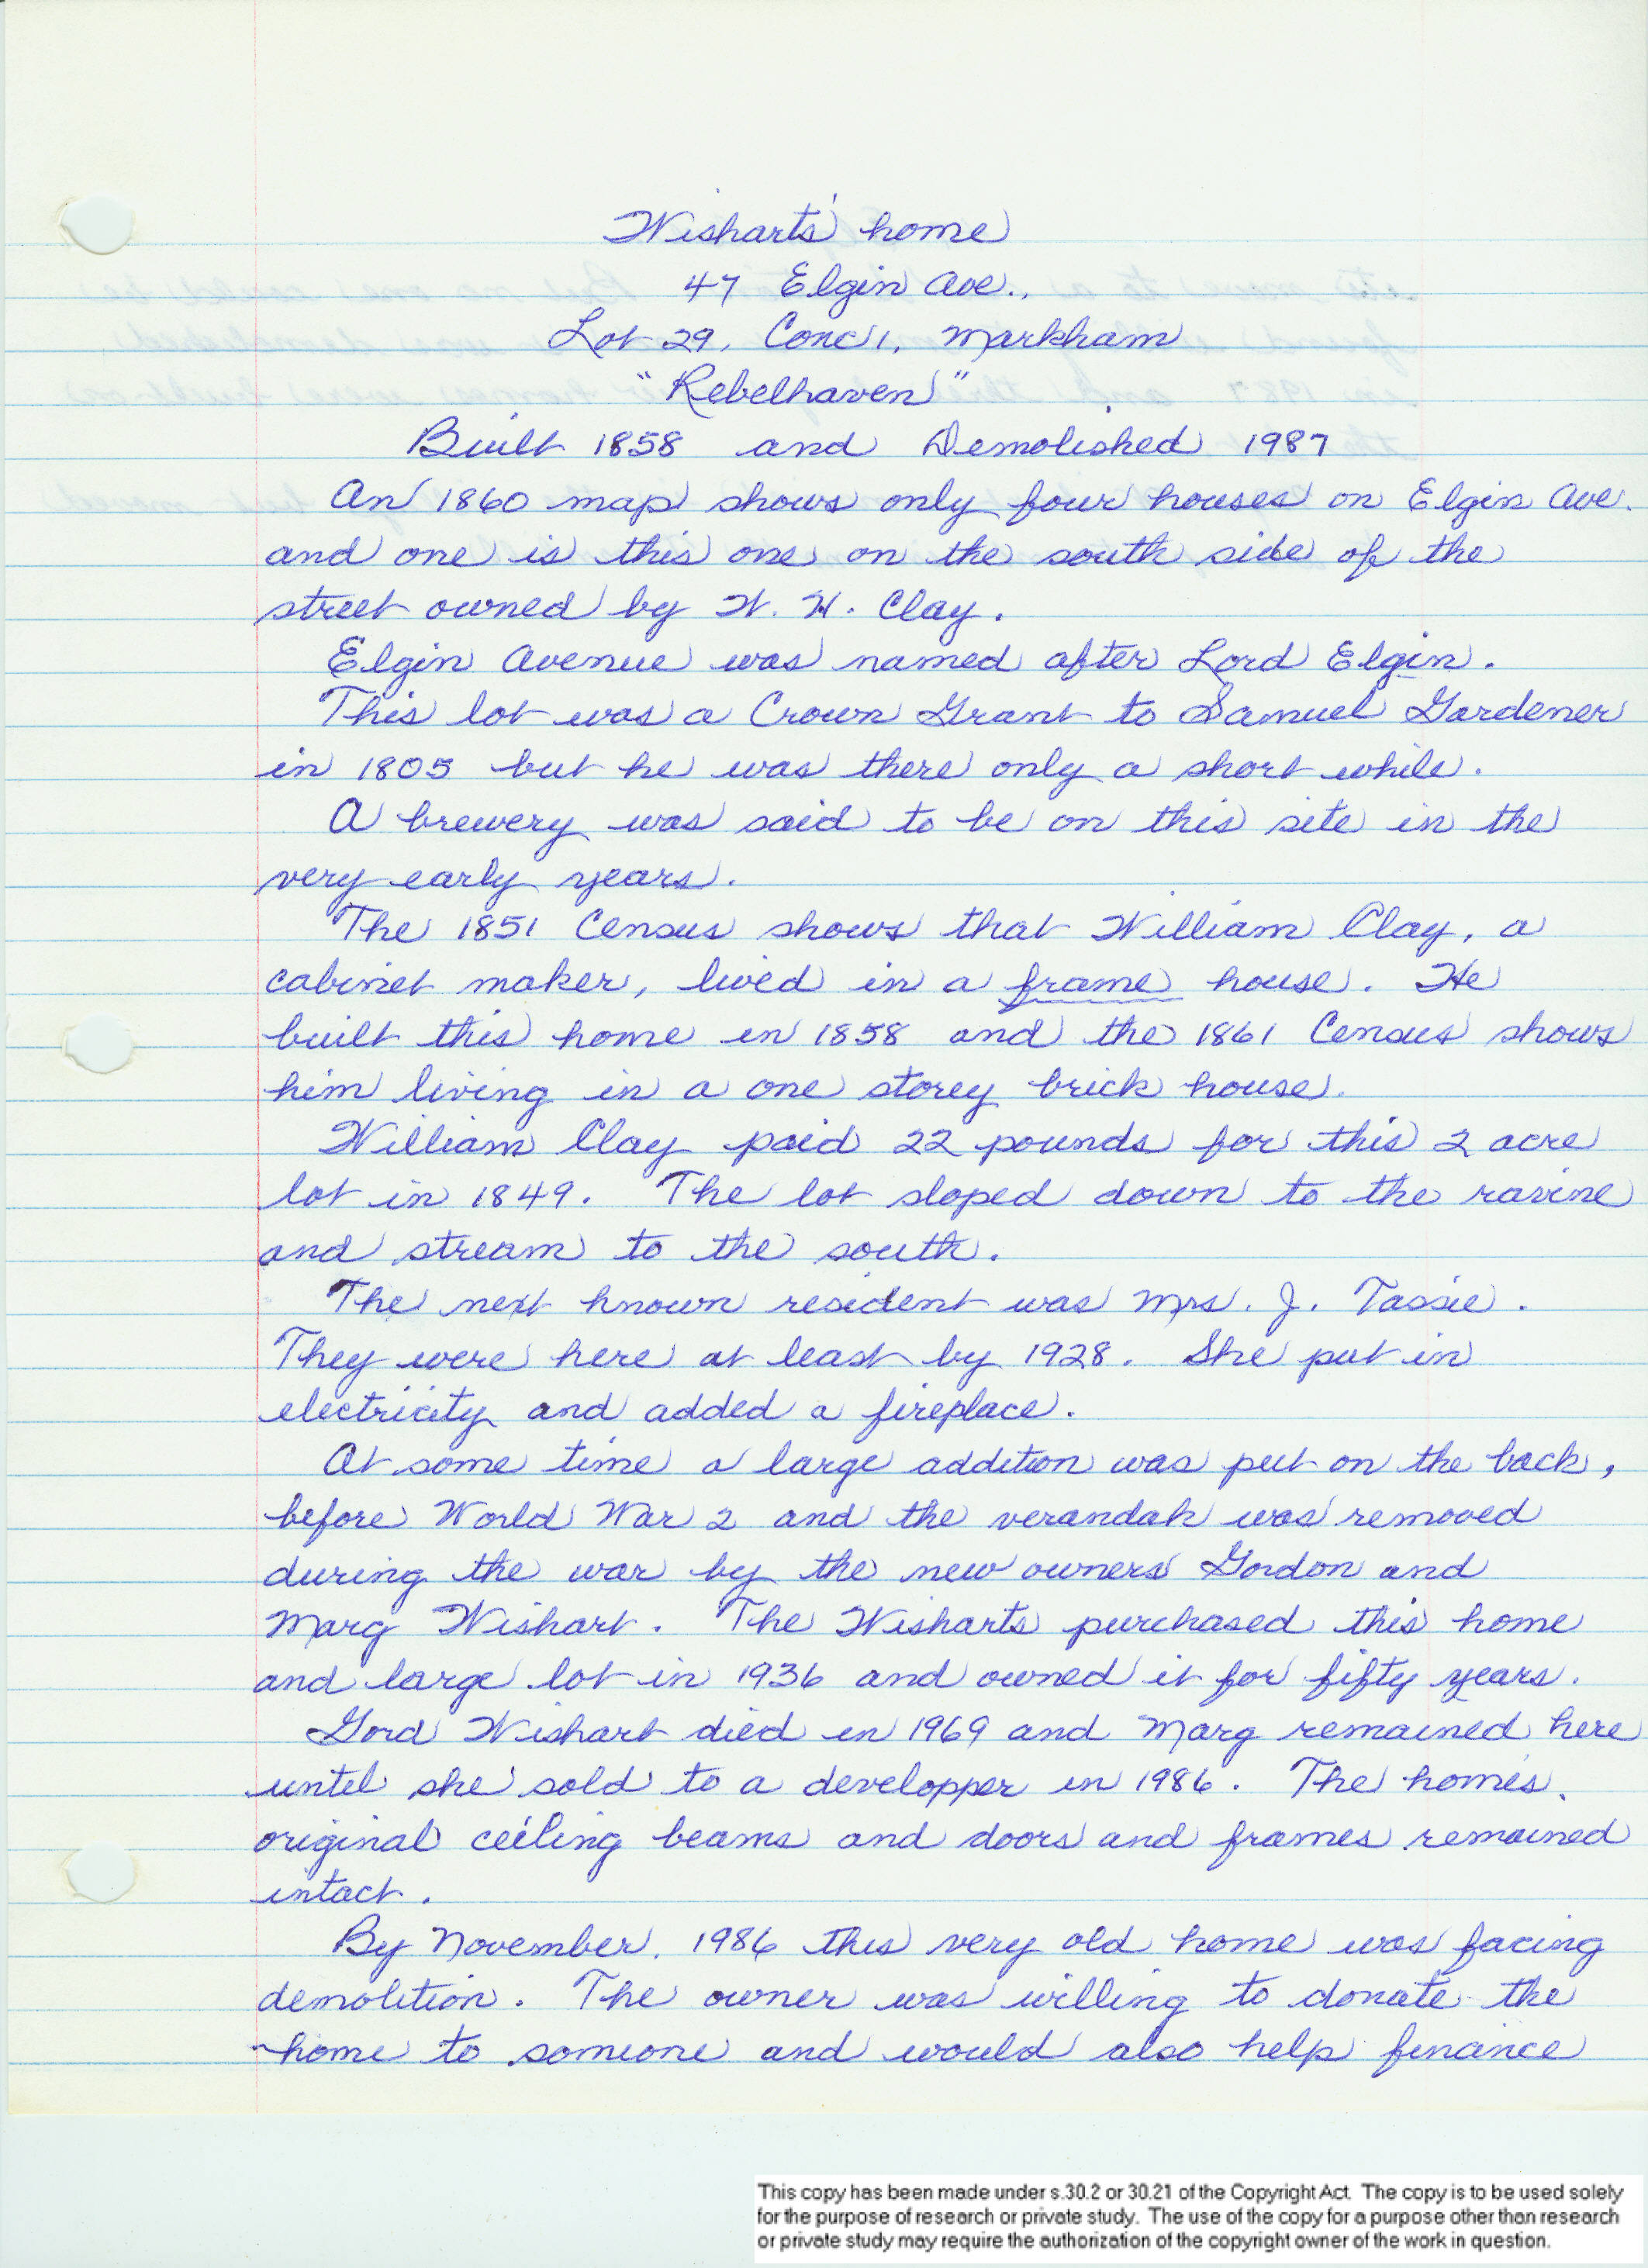 Wisharts' home
47 Elgin Ave.,
Lot 29, Conc 1, Markham
"Rebelhaven"
Built 1858 and Demolished 1987
An 1860 map shows only four houses on Elgin Ave.
and one is this one on the south side of the
street owned by W. H. Clay.
Elgin Avenue was named after Lord Elgin.
This lot was a Crown Grant to Samuel Gardener
in 1805 but he was there only a short while.
A brewery was said to be on this site in the
very early years.
The 1851 Census shows that William Clay, a
cabinet maker, lived in a frame house. He
built this home in 1858 and the 1861 Census shows
him living in a one storey brick house.
William Clay paid 22 pounds for this 2 acre
lot in 1849. The lot sloped down to the ravine
and stream to the south.
The next known resident was Mrs. J. Tassie.
They were here at least by 1928. She put in
electricity and added a fireplace.
At some time a large addition was put on the back,
before World War 2 and the verandah was removed
during the war by the new owners Gordon and
Marg Wishart. The Wisharts purchased this home
and large lot in 1936 and owned it for fifty years.
Gord Wishart died in 1969 and Marg remained here
until she sold to a developper in 1986. The home's
original ceiling beams and doors and frames remained
intact.
By November, 1986 this very old home was facing
demolition. The owner was willing to donate the
home to someone and would also help finance
This copy has been made under s.30.2 or 30.21 of the Copyright Act. The copy is to be used solely
for the purpose of research or private study. The use of the copy for a purpose other than research
or private study may require the authorization of the copyright owner of the work in question.